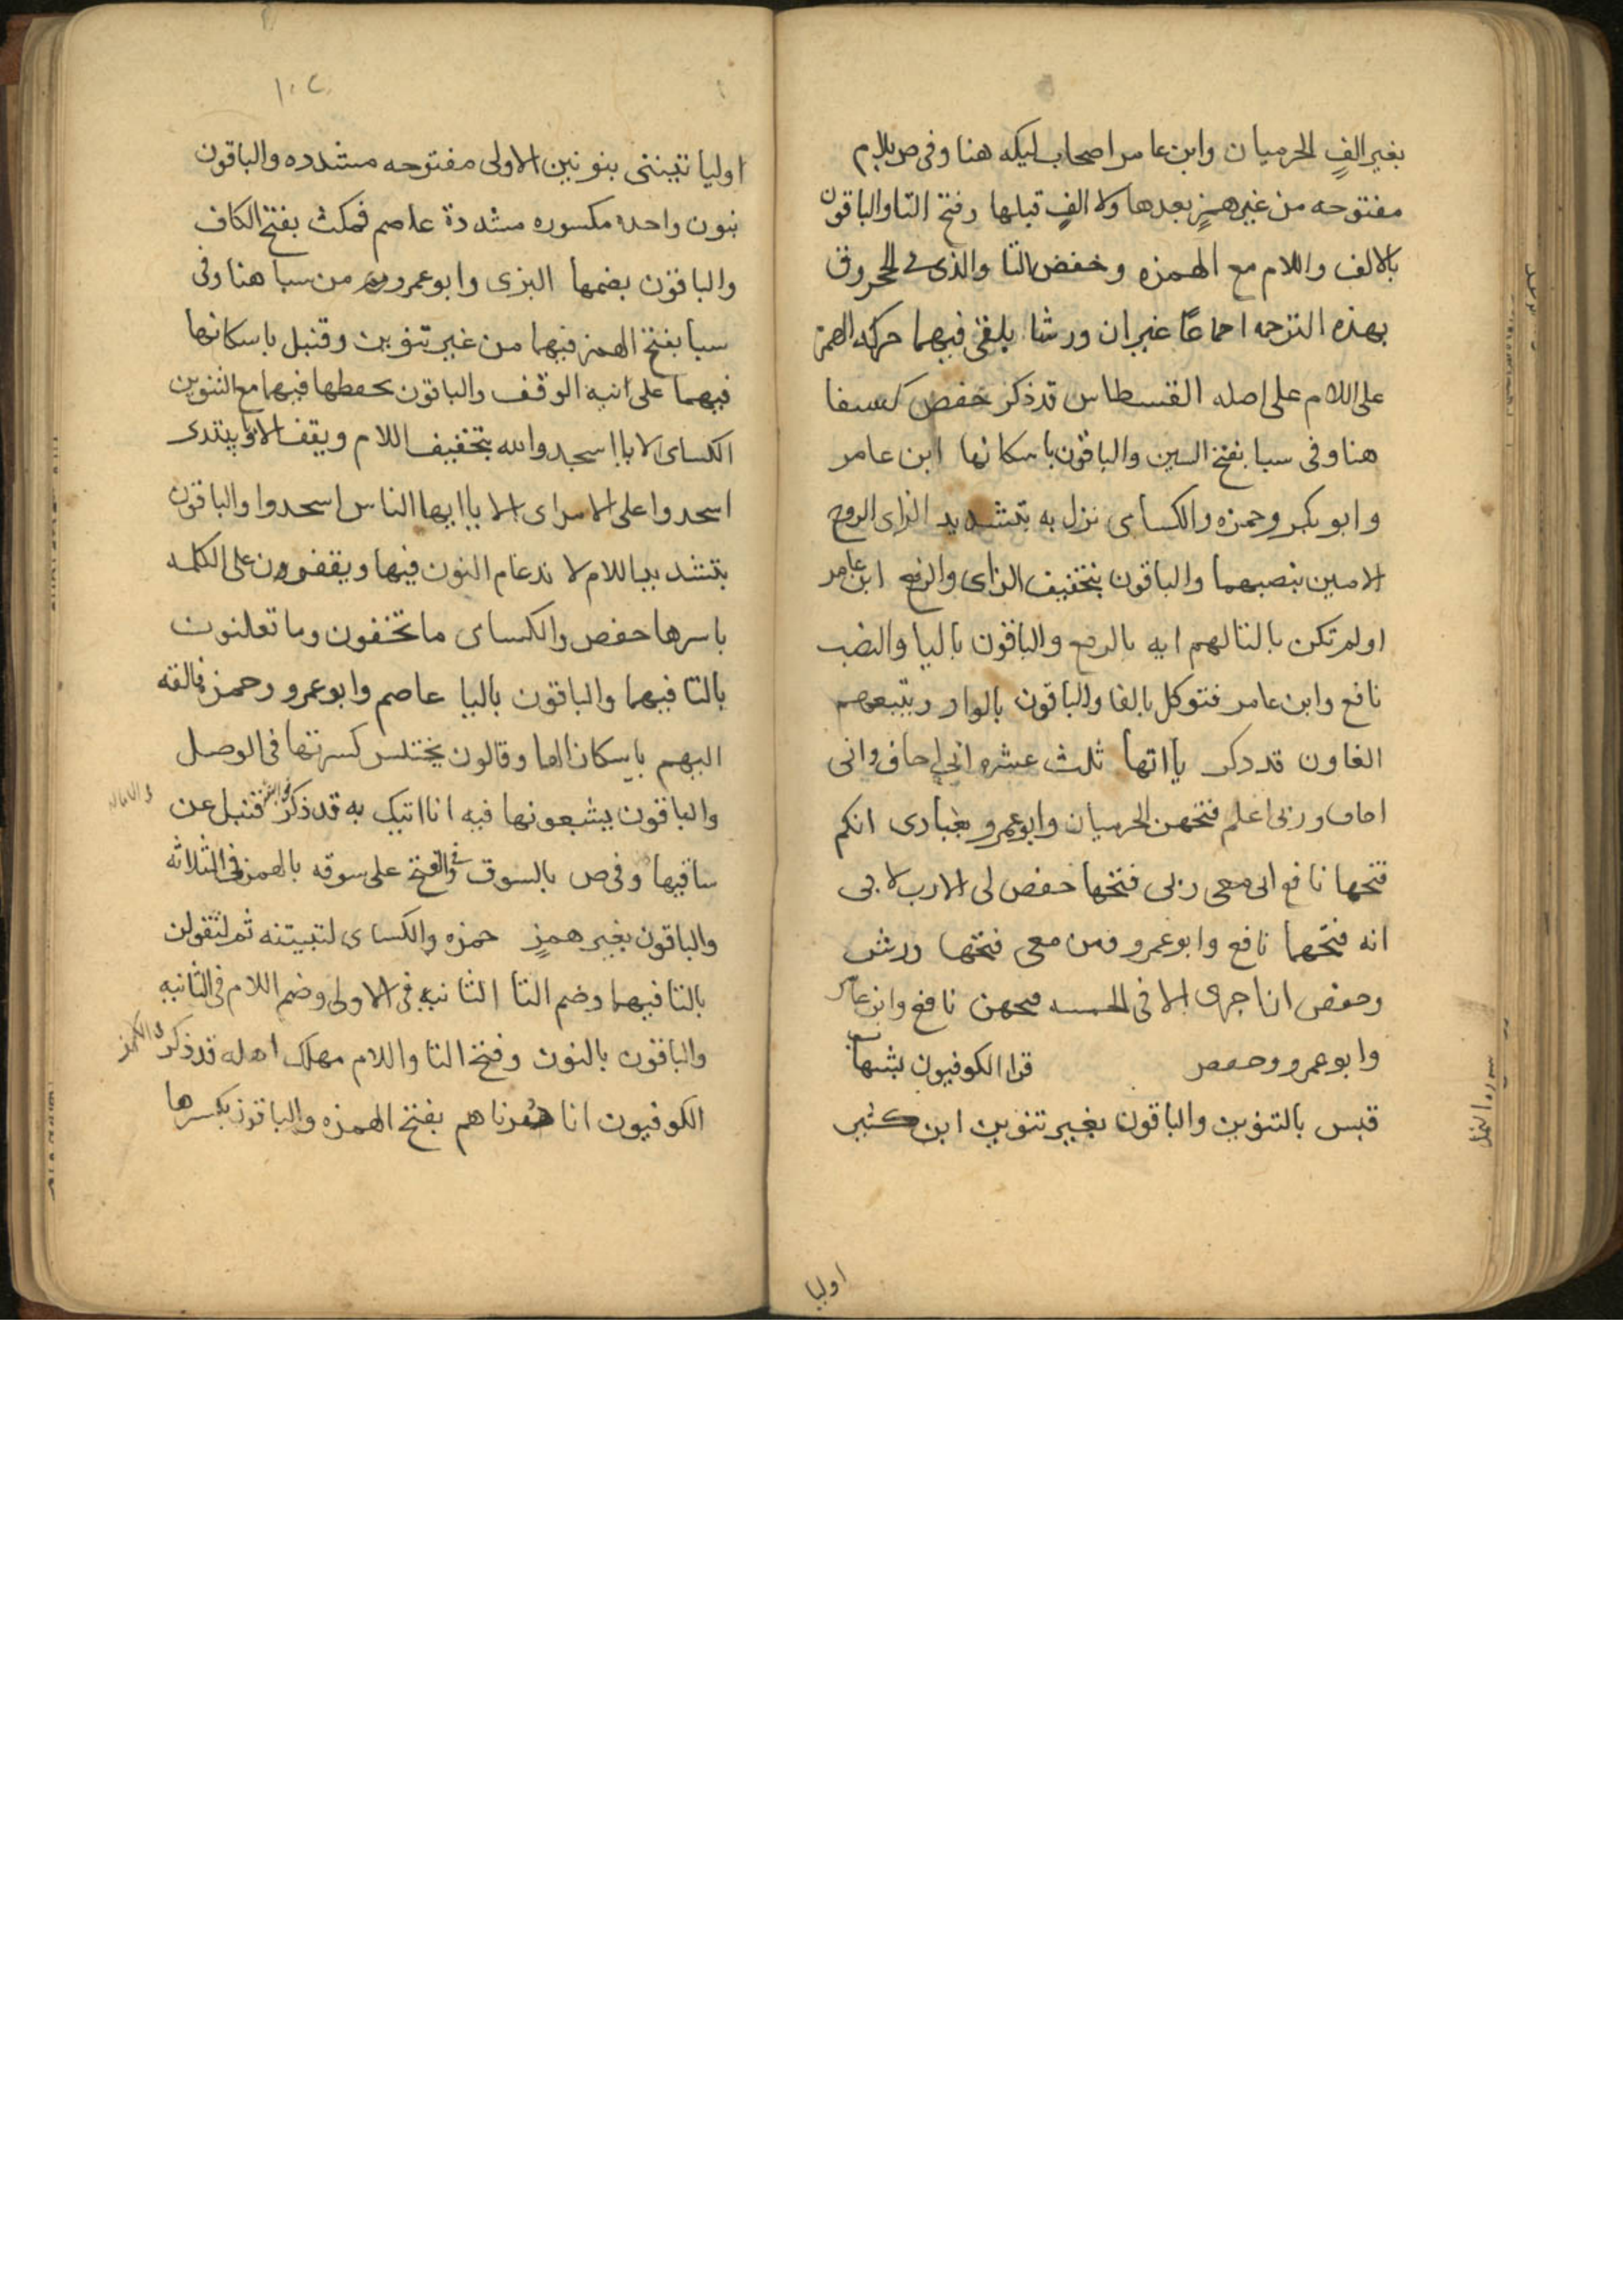 بغير الفٍ الحرميان وابن عامر اصحاب ليكه هنا وفى ص بلام
مفتوحه من غير همزٍ بعدها ولا الفٍ قبلها وفتح التا والباقون
بالالف واللام مع الهمزه وخفض التا والذى فى الحجر وق
بهذه الترجمه اجماعًا غير ان ورشا يلقى فيهما حركه الهمز
على اللام على اصله القسطاس قد ذكر حفص كسفا
هنا وفى سبا بفتح السين والباقون باسكانها ابن عامر
وابو بكر وحمزه والكساى نزل به بتشديد الزاى الروح
الامين بنصبهما والباقون بتخفيف الزاى والرفع ابن عامر
اولم تكن بالتا لهم ايه بالرفع والباقون باليا والنصب
نافع وابن عامر فتوكل بالفا والباقون بالواو ويتبعهم
الغاون قد ذكر يااتها ثلث عشره انى اخاف وانى
اخاف وربى اعلم فتحهن الحرميان وابو عمرو بعبادى انكم
فتحها نافع ان معى ربى فتحها حفص لى الا رب لابى
انه فتحهما نافع وابو عمرو ومن معى فتحها ورش
وحفص ان اجرى الا فى الخمسه فتحهن نافع وابن عامر
وابو عمرو وحفص قرا الكوفيون بشهاب
قبس بالتنوين والباقون بغير تنوين ابن كثير
سوره النمل
اوليا
١٠٢
اوليا تيننى بنونين الاولى مفتوحه مشدده والباقون
بنون واحده مكسوره مشددة عاصم فمكث بفتح الكاف
والباقون بضمها البزى وابو عمرو من سبا هنا وفى
سبا بفتح الهمز فيهما من غير تنوين وقنبل باسكانها
فيهما على نيه الوقف والباقون بخفضها فيهما مع التنوين
الكساى الا يا اسجدوا لله بتخفيف اللام ويقف الا يا ويبتدى
اسجدوا على الامر اى الا يا ايها الناس اسجدوا والباقون
بتشديد اللام لاندغام النون فيها ويقفون على الكلمه
باسرها حفص والكساى ما تخفون وما تعلنون
بالتا فيهما والباقون باليا عاصم وابو عمرو وحمزه فالقه
اليهم باسكان الها وقالون يختلس كسرتها فى الوصل
والباقون يشبعونها فيه انا اتيك به قد ذكر قنبل عن
ساقيها وفى ص بالسوق وفى الفتح على سوقه بالهمز فى الثلاثه
والباقون بغير همزٍ حمزه والكساى لتبيتنه ثم لتقولن
بالتا فيهما وضم التا الثانيه فى الاولى وضم اللام فى الثانيه
والباقون بالنون وفتح التا واللام مهلك اهله قد ذكر فى الكهف
الكوفيون انا دمرناهم بفتح الهمزه والباقون بكسرها